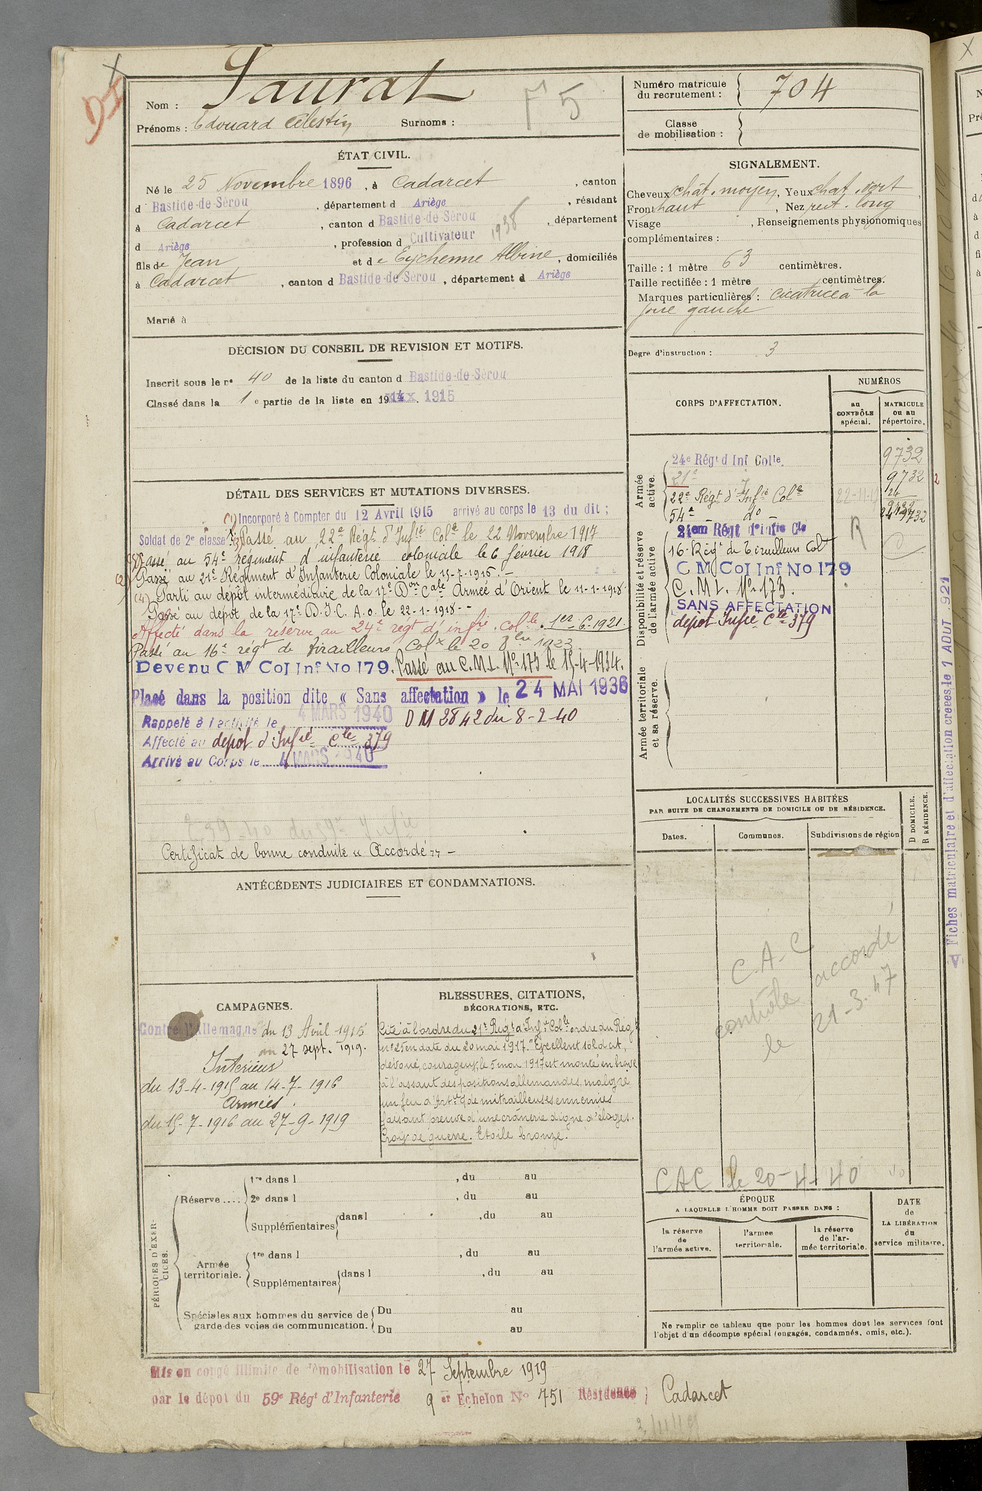 Nom : Saurat
Prénoms : Edouard Célestin Surnoms :
F 5
Numéro matricule du recrutement : 704
Classe de mobilisation :
ÉTAT CIVIL.
Né le 25 Novembre 1896, à Cadarcet, canton
d Bastide-de-Sérou, département d Ariège, résidant
à Cadarcet, canton d Bastide-de-Sérou, département
d Ariège, profession d Cultivateur 1938
fils de Jean et de Eychenne Albine, domiciliés
à Cadarcet, canton d Bastide-de-Sérou, département d Ariège
Marié à
SIGNALEMENT.
Cheveux chât. moyen, Yeux chat. vert
Front haut, Nez rect. long
Visage , Renseignements physionomiques
complémentaires :
Taille : 1 mètre 63 centimètres.
Taille rectifiée : 1 mètre centimètres.
Marques particulières : cicatrice à la
joue gauche
Degré d'instruction : 3
DÉCISION DU CONSEIL DE REVISION ET MOTIFS.
Inscrit sous le n° 40 de la liste du canton d Bastide-de-Sérou
Classé dans la 1e partie de la liste en 19 1915
DÉTAIL DES SERVICES ET MUTATIONS DIVERSES.
(1) Incorporé à Compter du 12 Avril 1915 arrivé au corps le 13 du dit ;
Soldat de 2e classe Passé au 22e Régt d'Infie Colle le 22 Novembre 1917
Passé au 54e régiment d'infanterie coloniale le 6 fevrier 1918
Passé au 21e Régiment d'Infanterie Coloniale le 15-7-1916.
(4) Parti au dépot intermédiaire de la 17e Don Cale Armée d'Orient le 11-1-1918
Passé au dépot de la 17e D.I.C. A.o. le 22-1-1918 -
Affecté dans la reserve au 24e régt d'infie Colle 1er 6-1921
Passé au 16e régt de Tirailleurs Colx le 20 1923
Devenu C M Col Inf No 179. Passé au C.M.I. No 173 le 15-4-1934.
Placé dans la position dite « Sans affectation » le 24 MAI 1936
Rappelé à l'activité le 4 MARS 1940 DM 2842 du 8-2-40
Affecté au depot d'Infie Cle 379
Arrivé au Corps le 4 MARS 1940
Certificat de bonne conduite « Accordé » -
CORPS D'AFFECTATION.
NUMÉROS
AU CONTRÔLE spécial.
MATRICULE OU AU répertoire.
Armée active.
24e Régt d'Inf Colle. 9732
21e 9732
22e Régt d'Infie Colle 22-11-17
54e do 9732
Disponibilité et réserve de l'armée active
24em Régt d'Infie Cle R
16e Régt de Tirailleurs Colx
C M Col Inf No 179
C.M.I. No 173.
SANS AFFECTATION
depot Infie Cle 379
Armée territoriale et sa réserve.
LOCALITÉS SUCCESSIVES HABITÉES
PAR SUITE DE CHANGEMENTS DE DOMICILE OU DE RÉSIDENCE.
Dates. Communes. Subdivisions de région
D DOMICILE. R RÉSIDENCE.
C.A.C
contrôle accordé
le 21-3-47
CAC le 20-4-40
ANTÉCÉDENTS JUDICIAIRES ET CONDAMNATIONS.
CAMPAGNES.
Contre l'Allemagne du 13 Avril 1915
au 27 sept. 1919.
Intérieur
du 13-4-1915 au 14-7-1916
Armées.
du 15-7-1916 au 27-9-1919
BLESSURES, CITATIONS,
DÉCORATIONS, ETC.
Cité à l'ordre du 21e Regt d'Infie Colle ordre du Regt
no 125 en date du 20 mai 1917. "Excellent soldat,
dévoué, courageux, le 5 mai 1917 est monté en
à l'assaut des positions allemandes malgré
un feu d'Artie & de mitrailleuses ennemies
faisant preuve d'une crânerie digne d'éloges."
Croix de guerre. Etoile bronze.
PÉRIODES D'EXERCICES.
Réserve .... 1re dans l , du au
2e dans l , du au
Supplémentaires dans l , du au
Armée territoriale. 1re dans l , du au
Supplémentaires dans l , du au
Spéciales aux hommes du service de garde des voies de communication. Du au
Du au
ÉPOQUE
A LAQUELLE L'HOMME DOIT PASSER DANS :
la réserve de l'armée active.
l'armée territoriale.
la réserve de l'armée territoriale.
DATE de LA LIBÉRATION du service militaire.
Ne remplir ce tableau que pour les hommes dont les services font
l'objet d'un décompte spécial (engagés, condamnés, omis, etc.).
Mis en congé illimité de démobilisation le 27 Septembre 1919
par le dépot du 59e Régt d'Infanterie 9 er Echelon No 751 Résidence } Cadarcet
V. Fiches matriculaire et d'affectation créées le 1 AOUT 921